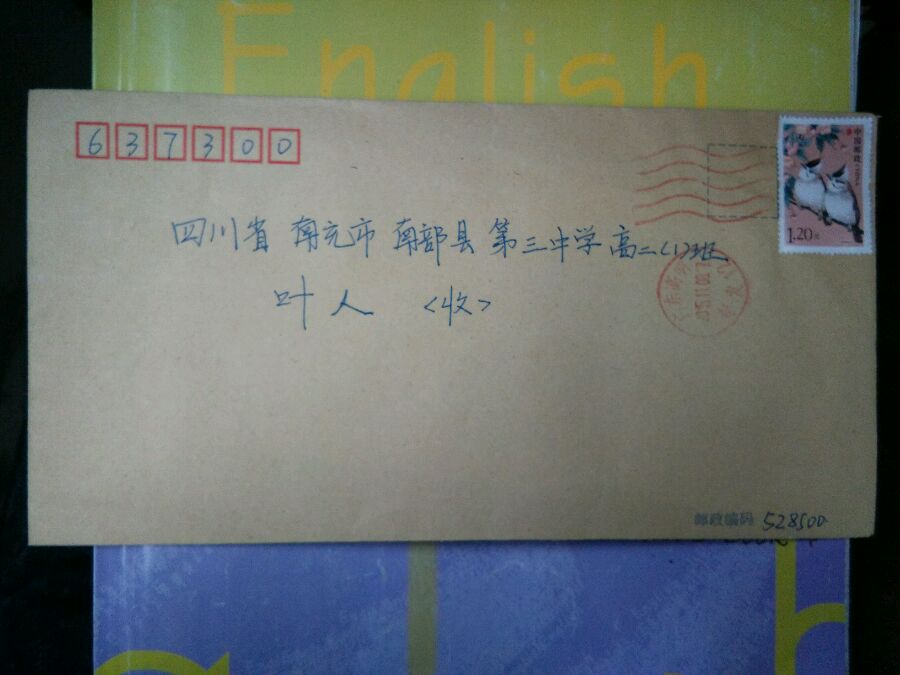 English
637300
中国邮政
1.20元
四川省 南充市 南部县 第三中学高二(1)班
叶人 <收>
邮政编码 528500